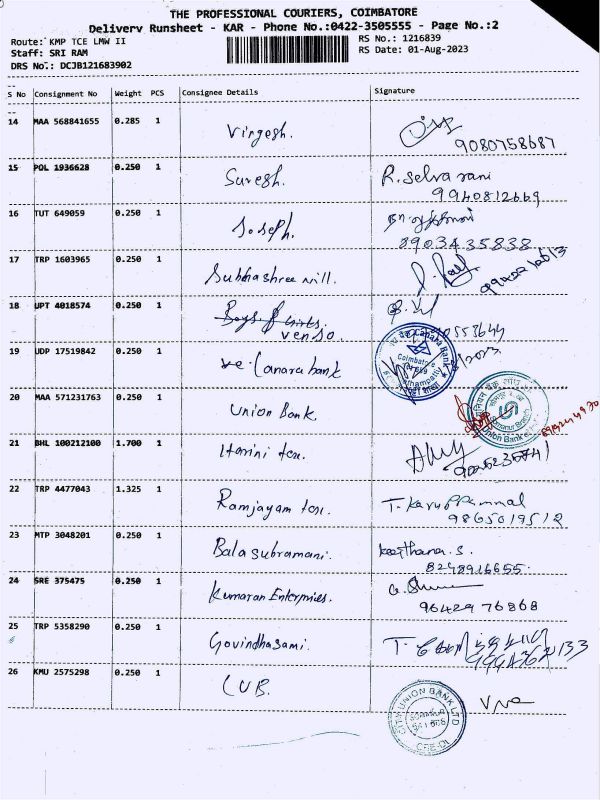 THE PROFESSIONAL COURIERS, COIMBATORE
Delivery Runsheet - KAR - Phone No.:0422-3505555 - Page No.:2
Route: KMP TCE LMW II
RS No.: 1216839
Staff: SRI RAM
RS Date: 01-Aug-2023
DRS No.: DCJB121683902
S No Consignment No Weight PCS Consignee Details Signature
14 MAA 568841655 0.285 1 Virgesh.
9080758687
15 POL 1936628 0.250 1 Suresh. R. Selva rani
9940812669
16 TUT 649059 0.250 1 Joseph.
8903435838
17 TRP 1603965 0.250 1 Subhashree mill.
18 UPT 4018574 0.250 1 Boys & Girls
venso.
19 UDP 17519842 0.250 1 Canara bank
Canara Bank
Coimbatore
20 MAA 571231763 0.250 1 Union Bank.
Union Bank
21 BHL 100212100 1.700 1 Harini tex.
22 TRP 4477043 1.325 1 Ramjayam tex. T. Karuppammal
9865019512
23 MTP 3048201 0.250 1 Balasubramani. keerthana. S.
8248916655.
24 SRE 375475 0.250 1 Kumaran Enterprises.
9642976868
25 TRP 5358290 0.250 1 Govindhasami. T.
26 KMU 2575298 0.250 1 CUB.
CITY UNION BANK LTD